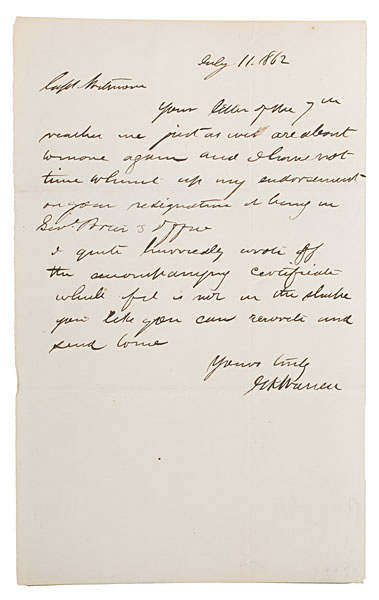 July 11. 1862
Capt
Your letter of the 7th
reaches me just as we are about
to move again and I have not
time to hunt up my endorsement
on your resignation it being in
Genl office
I quite hurriedly wrote off
the accompanying certificate
which if it is not in the shape
you like you can rewrite and
send to me
Yours truly
GK Warren